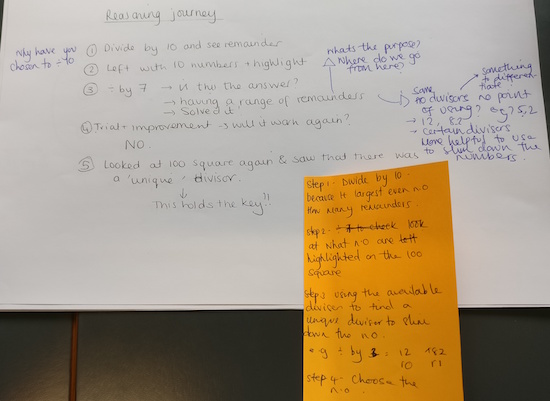 Reasoning journey
Why have you
chosen to ÷ 10
① Divide by 10 and see remainder
② Left with 10 numbers → highlight
③ ÷ by 7 → is this the answer?
→ having a range of remainders
→ Solved it
④ Trial + improvement → will it work again?
NO.
⑤ Looked at 100 square again & saw that there was
a 'unique' divisor.
↓
This holds the key!!
What's the purpose?
Where do we go
from here?
something
to differen-
tiate
Some
divisors no point
of using? eg? 5, 2
→ 12, 8?
→ certain divisors
more helpful to use
to slim down the
numbers.
Step 1: Divide by 10.
because it largest even no
How many remainders.
step 2: to check look
at what n.o are left
highlighted on the 100
square
step 3 using the available
divisor to find a
unique divisor to slim
down the no.
e.g ÷ by 3 = 12
r0 r1
step 4 - Choose the
n.o.